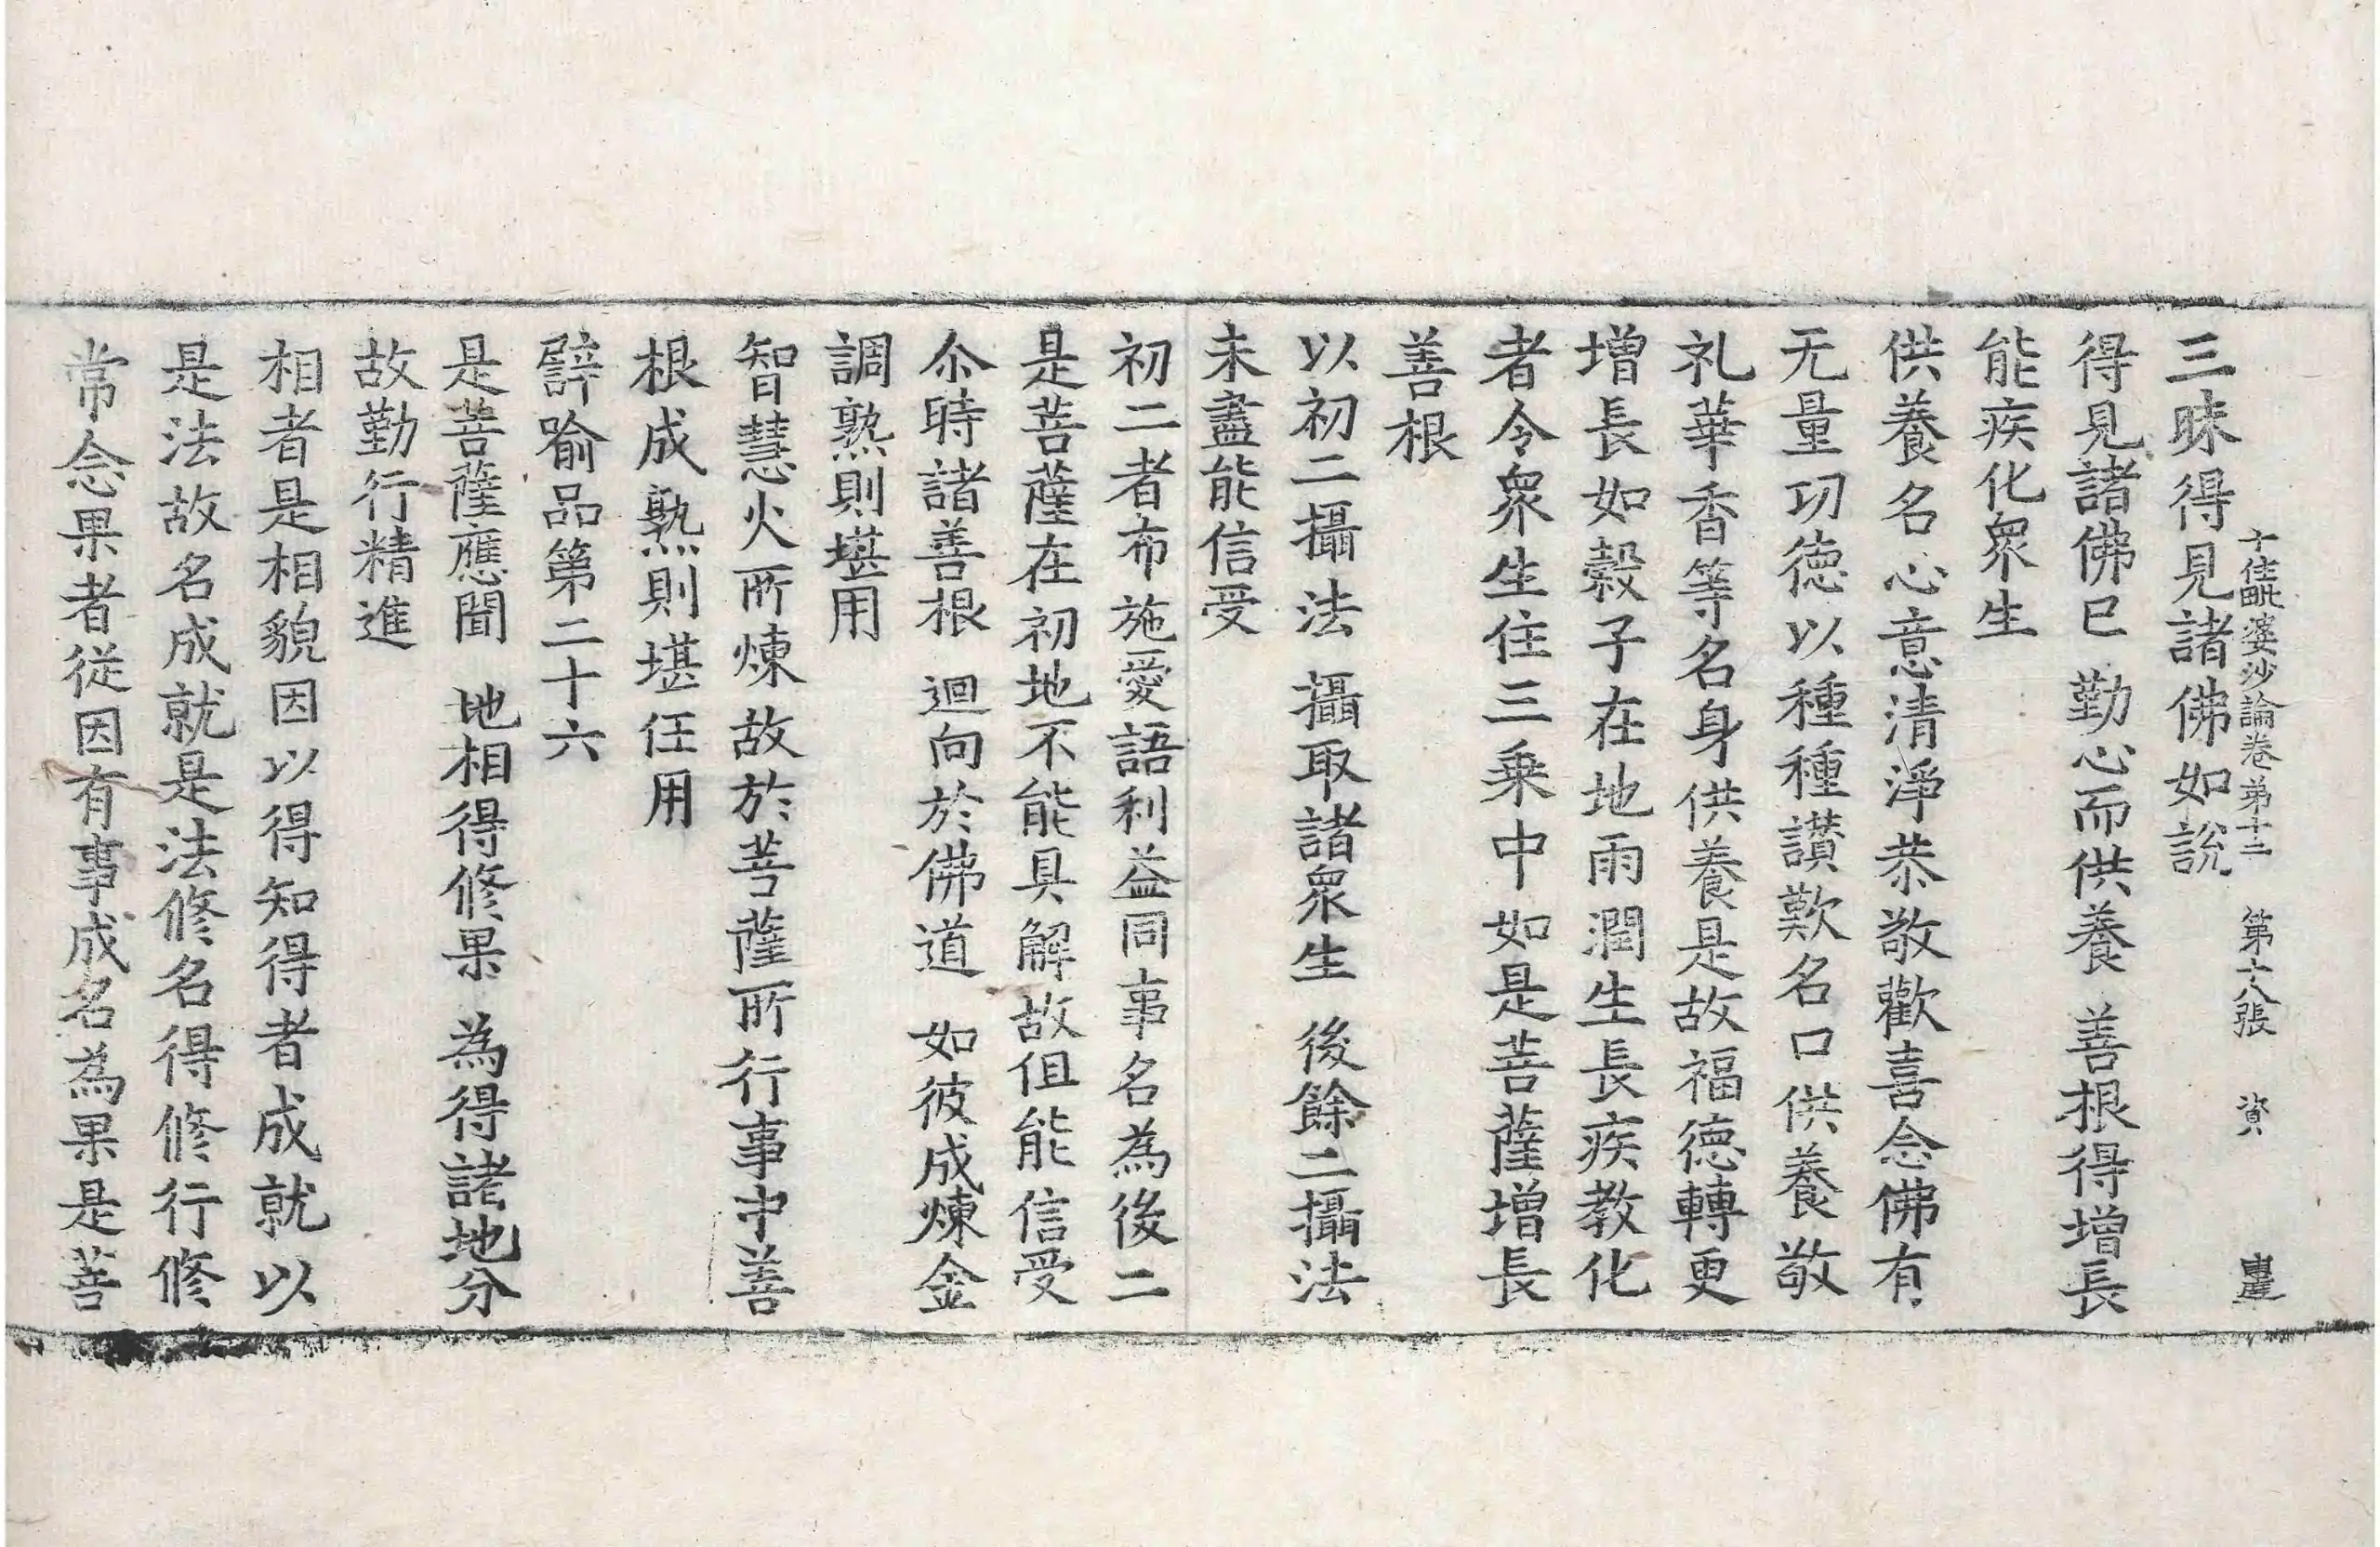 十住毗婆沙論卷第十二　第十八張　資
三昧得見諸佛如說
得見諸佛已　勤心而供養　善根得增長
能疾化衆生
供養名心意清淨恭敬歡喜念佛有
无量功德以種種讃歎名口供養敬
礼華香等名身供養是故福德轉更
增長如穀子在地雨潤生長疾教化
者令衆生住三乗中如是菩薩增長
善根
以初二攝法　攝取諸衆生　後餘二攝法
未盡能信受
初二者布施愛語利益同事名為後二
是菩薩在初地不能具解故但能信受
尒時諸善根　迴向於佛道　如彼成煉金
調熟則堪用
智慧火所煉故於菩薩所行事中善
根成熟則堪任用
譬喻品第二十六
是菩薩應聞　地相得修果　為得諸地分
故勤行精進
相者是相貌因以得知得者成就以
是法故名成就是法修名得修行修
常念果者從因有事成名為果是菩